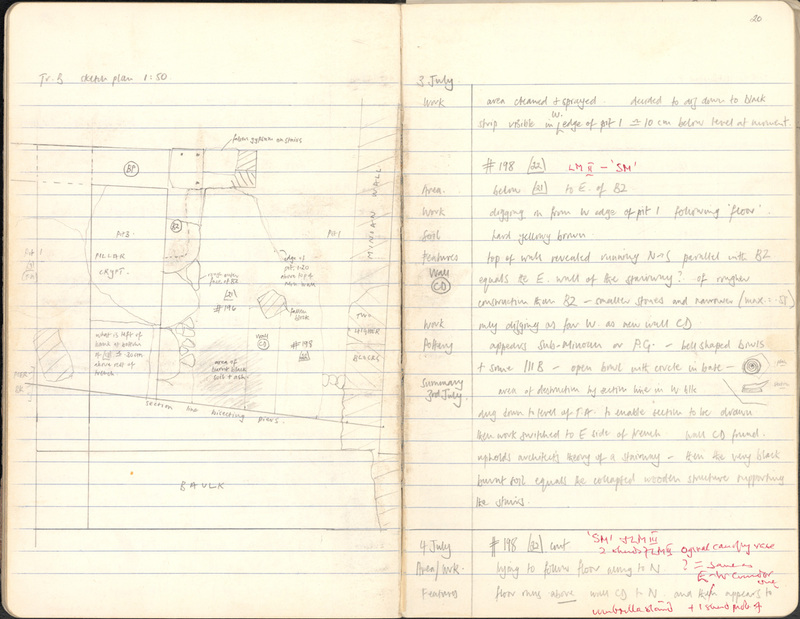 Tr. B sketch plan 1:50.
fallen gypsum on stairs
BP
MINOAN WALL
BZ
Pit 3
Pit 1
PILLAR
CRYPT.
edge of
#196
fallen
block
what is left of
20 cm
above rest of
trench
Wall
CD
#198
22
TWO
HIGHER
BLOCKS
area of
burnt black
soil + ash
section line bisecting piers.
BAULK
20
3 July
Work area cleaned + sprayed. decided to dig down to black
strip visible in W. edge of pit 1 ≏ 10 cm below level at moment.
#198 22 LM II - 'SM'
Area. below 21 to E. of BZ
Work digging in from W edge of pit 1 following 'floor'.
Soil hard yellowy brown.
Features top of wall revealed running N-S parallel with BZ
Wall
CD
equals the E. wall of the stairway? of rougher
construction than BZ - smaller stones and narrower
Work only digging as far W. as new wall CD
Pottery appears sub-Minoan or P.G. - bell shaped bowls
+ some IIIB - open bowl with circle in base -
Summary
3rd July.
area of destruction by section line in W
dug down to level of to enable section to be drawn
then work switched to E side of trench wall CD found.
upholds architect's theory of a stairway - then the very black
burnt soil equals the collapsed wooden structure supporting
the stairs.
4 July #198 22 cont 'SM' + LM III
2 sherds of LM II
Area/wk. trying to follow floor along to N. ? = same as
E-W corridor
Features floor runs above wall CD to N. and then appears to
umbrella stand + 1 sherd prob of